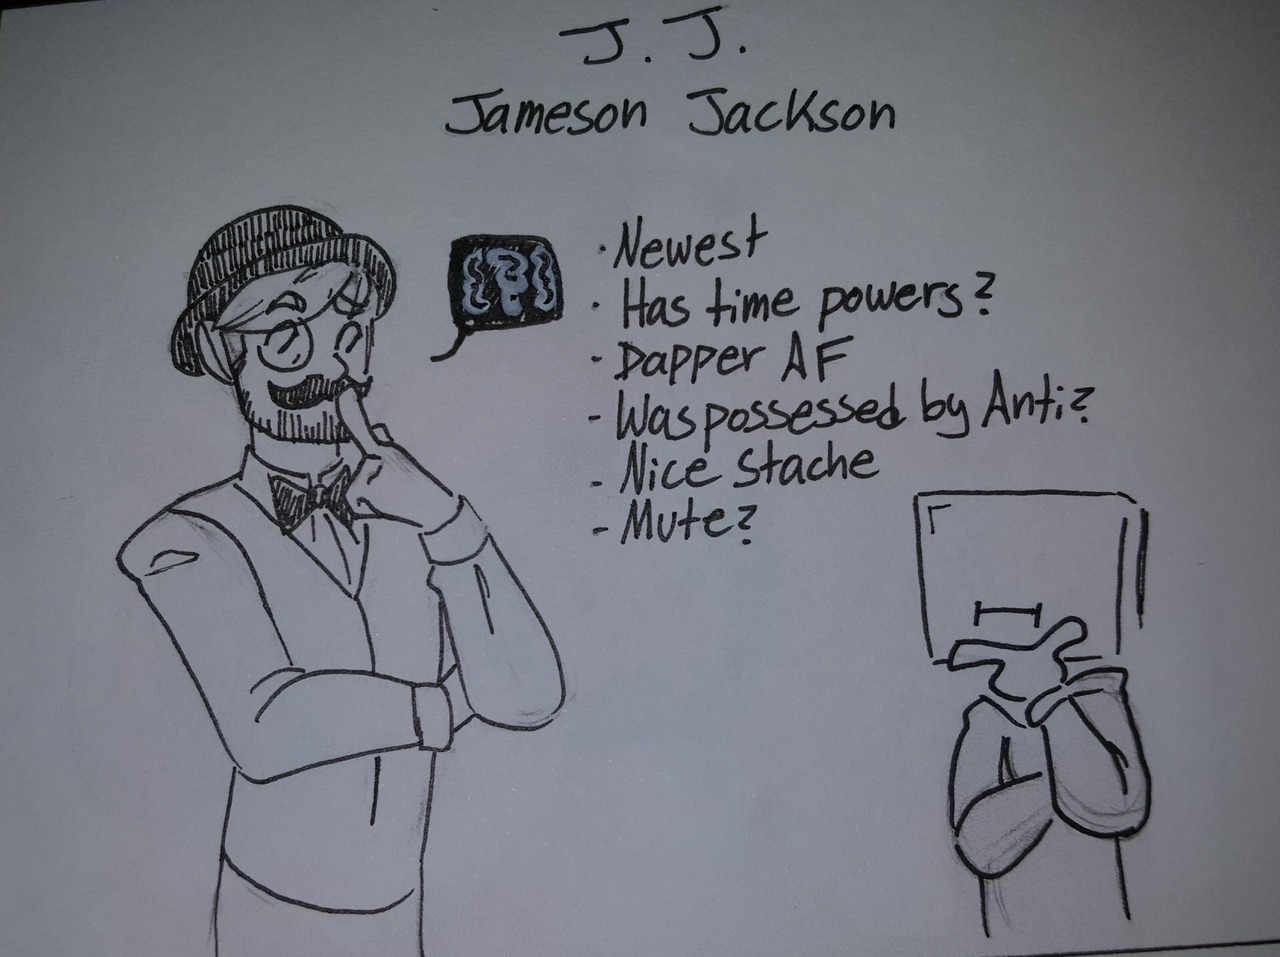 J. J.
Jameson Jackson
{?}
· Newest
· Has time powers?
- Dapper AF
- Was possessed by Anti?
- Nice Stache
- Mute?